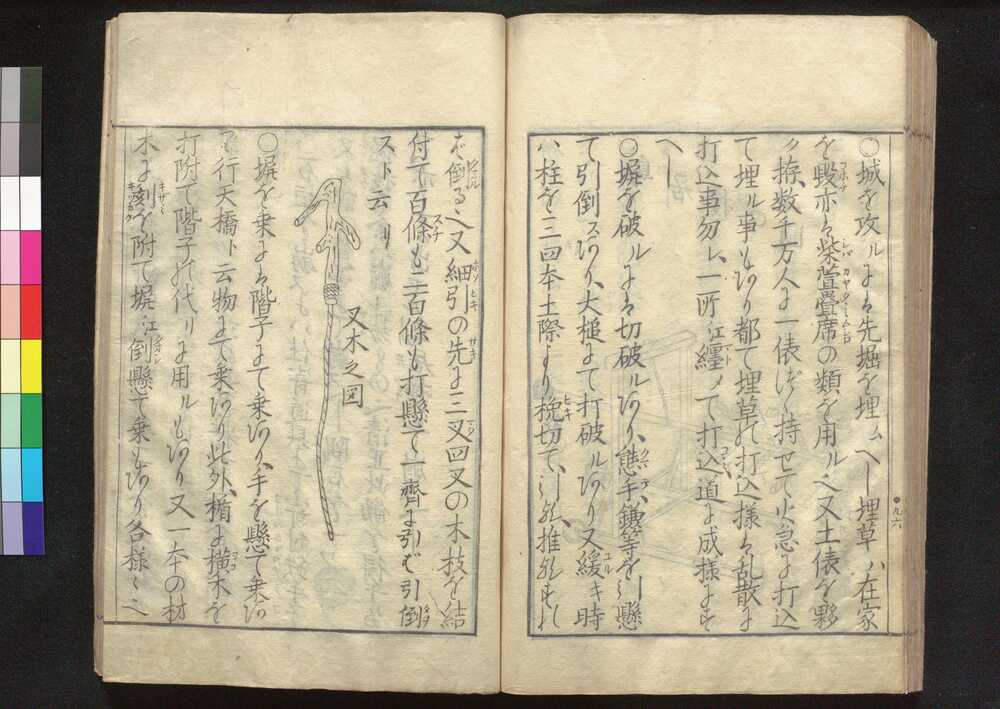 〇城を攻ルには先堀を埋ムべし埋草ハ在家
を毀亦は柴萱疊席の類を用ル也又土俵を夥
ク拵、数千万人に一俵づゝ持せて火急に打込
て埋ル事もあり都て埋草の打込様は乱散に
打込事勿レ、一所江纏メて打込道に成様にす
べし
〇塀を破ルには切破ルあり、熊手、鎌等を引懸
て引倒スあり、大槌にて打破ルあり又緩キ時
ハ柱を三四本土際より挽切て、引 推 すれ
九六
ば倒る也又細引の先に三叉四叉の木枝を結
付て百條も二百條も打懸て一齊に引ば引倒
スト云リ
叉木之図
〇塀を乗には階子にて乗あり、手を懸て乗あ
り行天橋ト云物にて乗あり此外、楯に横木を
打附て階子の代リに用ルもあり又一本の材
木に刻を附て塀江倒懸て乗もあり各様々也